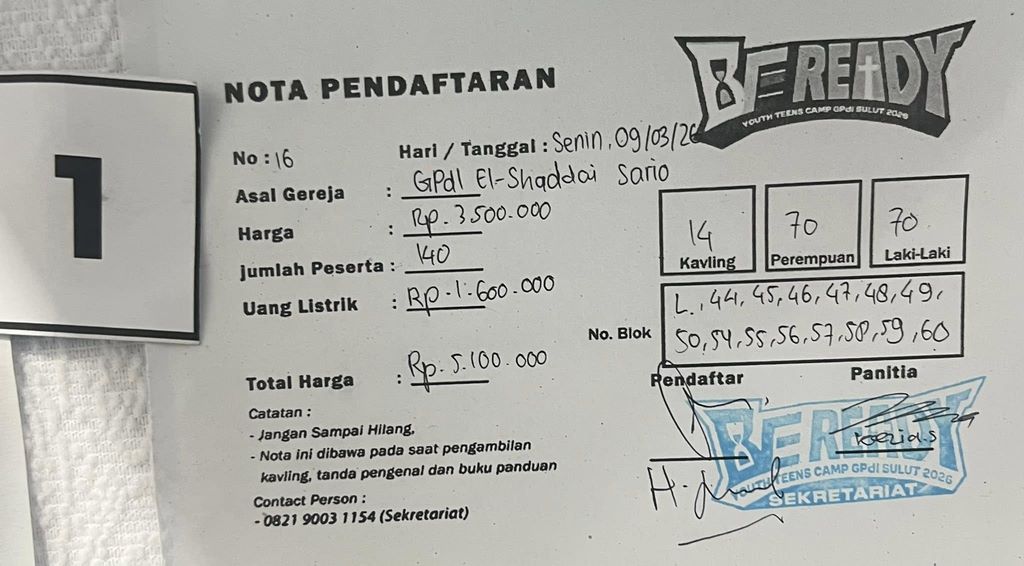 1
NOTA PENDAFTARAN
BE READY
YOUTH TEENS CAMP GPdI SULUT 2026
No : 16
Hari / Tanggal : Senin, 09/03/26
Asal Gereja : GPdI El-Shaddai Sario
Harga : Rp. 3.500.000
jumlah Peserta : 140
Uang Listrik : Rp. 1.600.000
Total Harga : Rp. 5.100.000
14
Kavling
70
Perempuan
70
Laki-Laki
No. Blok
L. 44, 45, 46, 47, 48, 49,
50, 54, 55, 56, 57, 58, 59, 60
Pendaftar
Panitia
BE READY
YOUTH TEENS CAMP GPdI SULUT 2026
SEKRETARIAT
Catatan :
- Jangan Sampai Hilang,
- Nota ini dibawa pada saat pengambilan
kavling, tanda pengenal dan buku panduan
Contact Person :
- 0821 9003 1154 (Sekretariat)